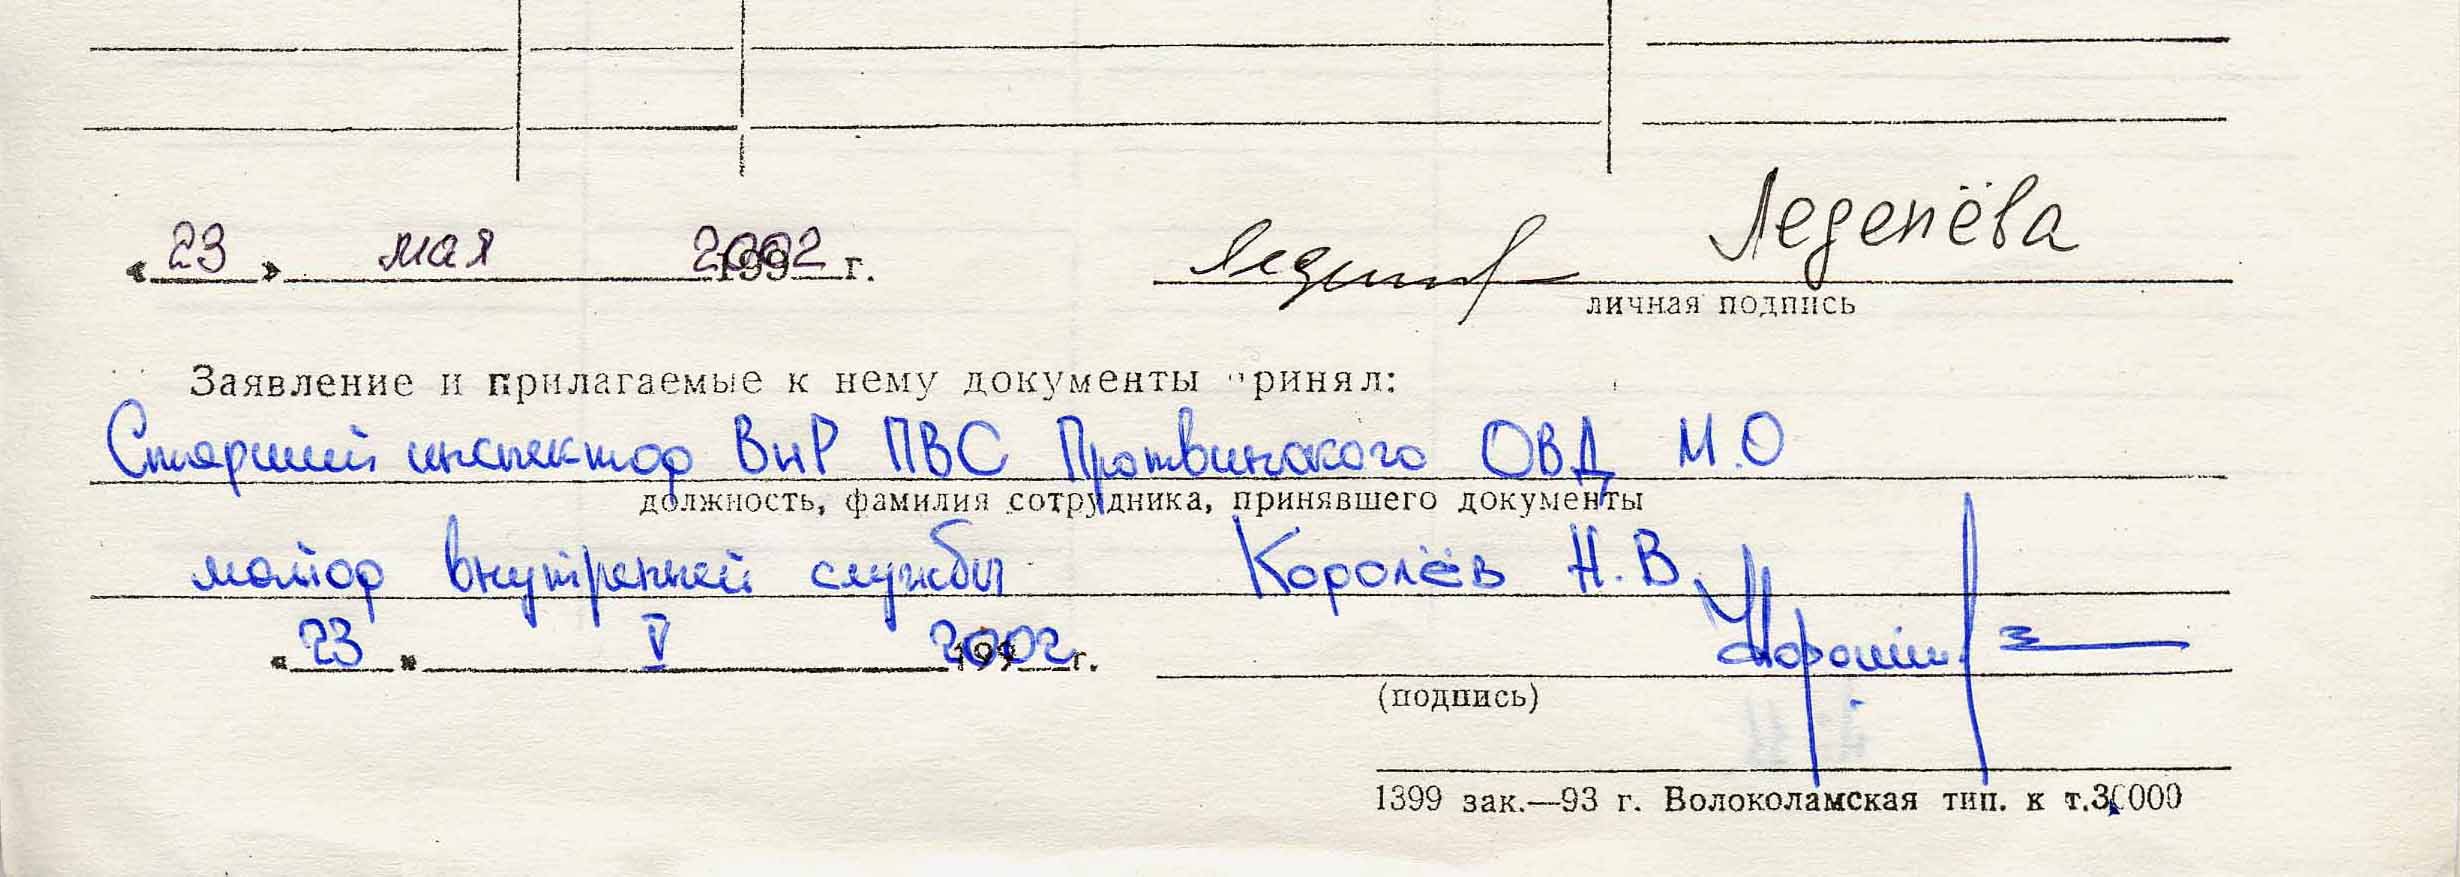 «23» мая 2002 г. Леденёва
личная подпись
Заявление и прилагаемые к нему документы принял:
Старший инспектор ВиР ПВС Протвинского ОВД М.О
должность, фамилия сотрудника, принявшего документы
майор внутренней службы Королёв Н.В.
«23» V 2002 г.
(подпись)
1399 зак.—93 г. Волоколамская тип. к т. 000